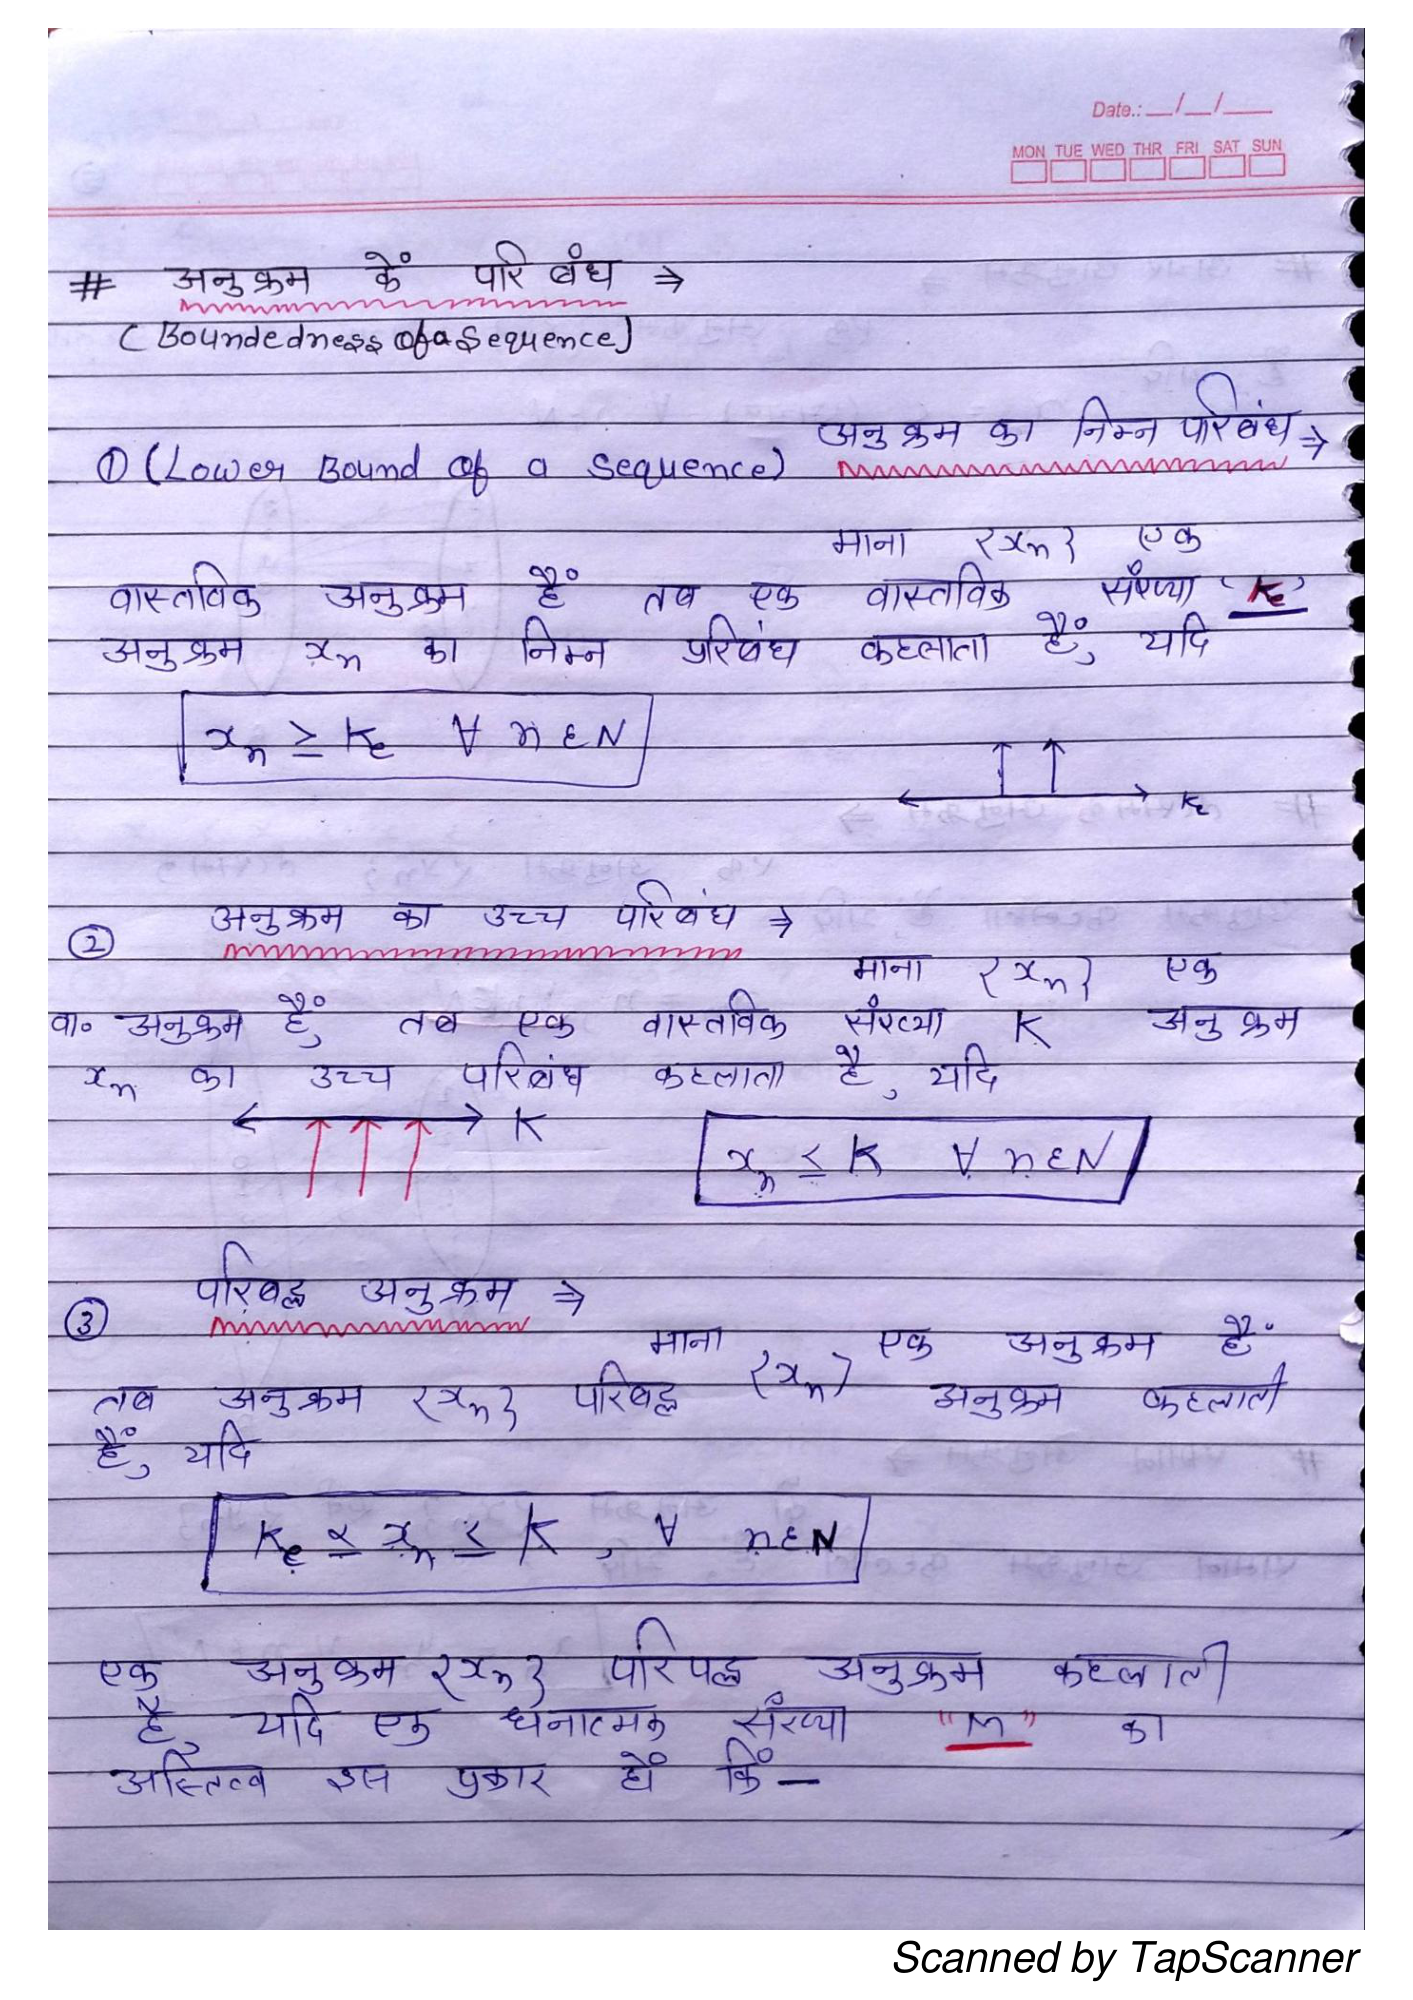 Date.: __/__/___
MON TUE WED THR FRI SAT SUN
# अनुक्रम कें परिबंध ⇒
(Boundedness of a Sequence)
अनुक्रम का निम्न परिबंध ⇒
① (Lower Bound of a Sequence)
माना {xₙ} एक
वास्तविक अनुक्रम हैं तब एक वास्तविक संख्या 'Kₑ'
अनुक्रम xₙ का निम्न परिबंध कहलाता हैं, यदि
xₙ ≥ Kₑ ∀ n ϵ N
Kₑ
② अनुक्रम का उच्च परिबंध ⇒
माना {xₙ} एक
वा० अनुक्रम हैं, तब एक वास्तविक संख्या K अनुक्रम
xₙ का उच्च परिबंध कहलाता है, यदि
K
xₙ ≤ K ∀ n ϵ N
③ परिबद्ध अनुक्रम ⇒
माना {xₙ} एक अनुक्रम हैं
तब अनुक्रम {xₙ} परिबद्ध अनुक्रम कहलाती
हैं, यदि
Kₑ ≤ xₙ ≤ K , ∀ n ϵ N
एक अनुक्रम {xₙ} परिपद्ध अनुक्रम कहलाती
है, यदि एक धनात्मक संख्या "M" का
अस्तित्व इस प्रकार हों किं —
Scanned by TapScanner